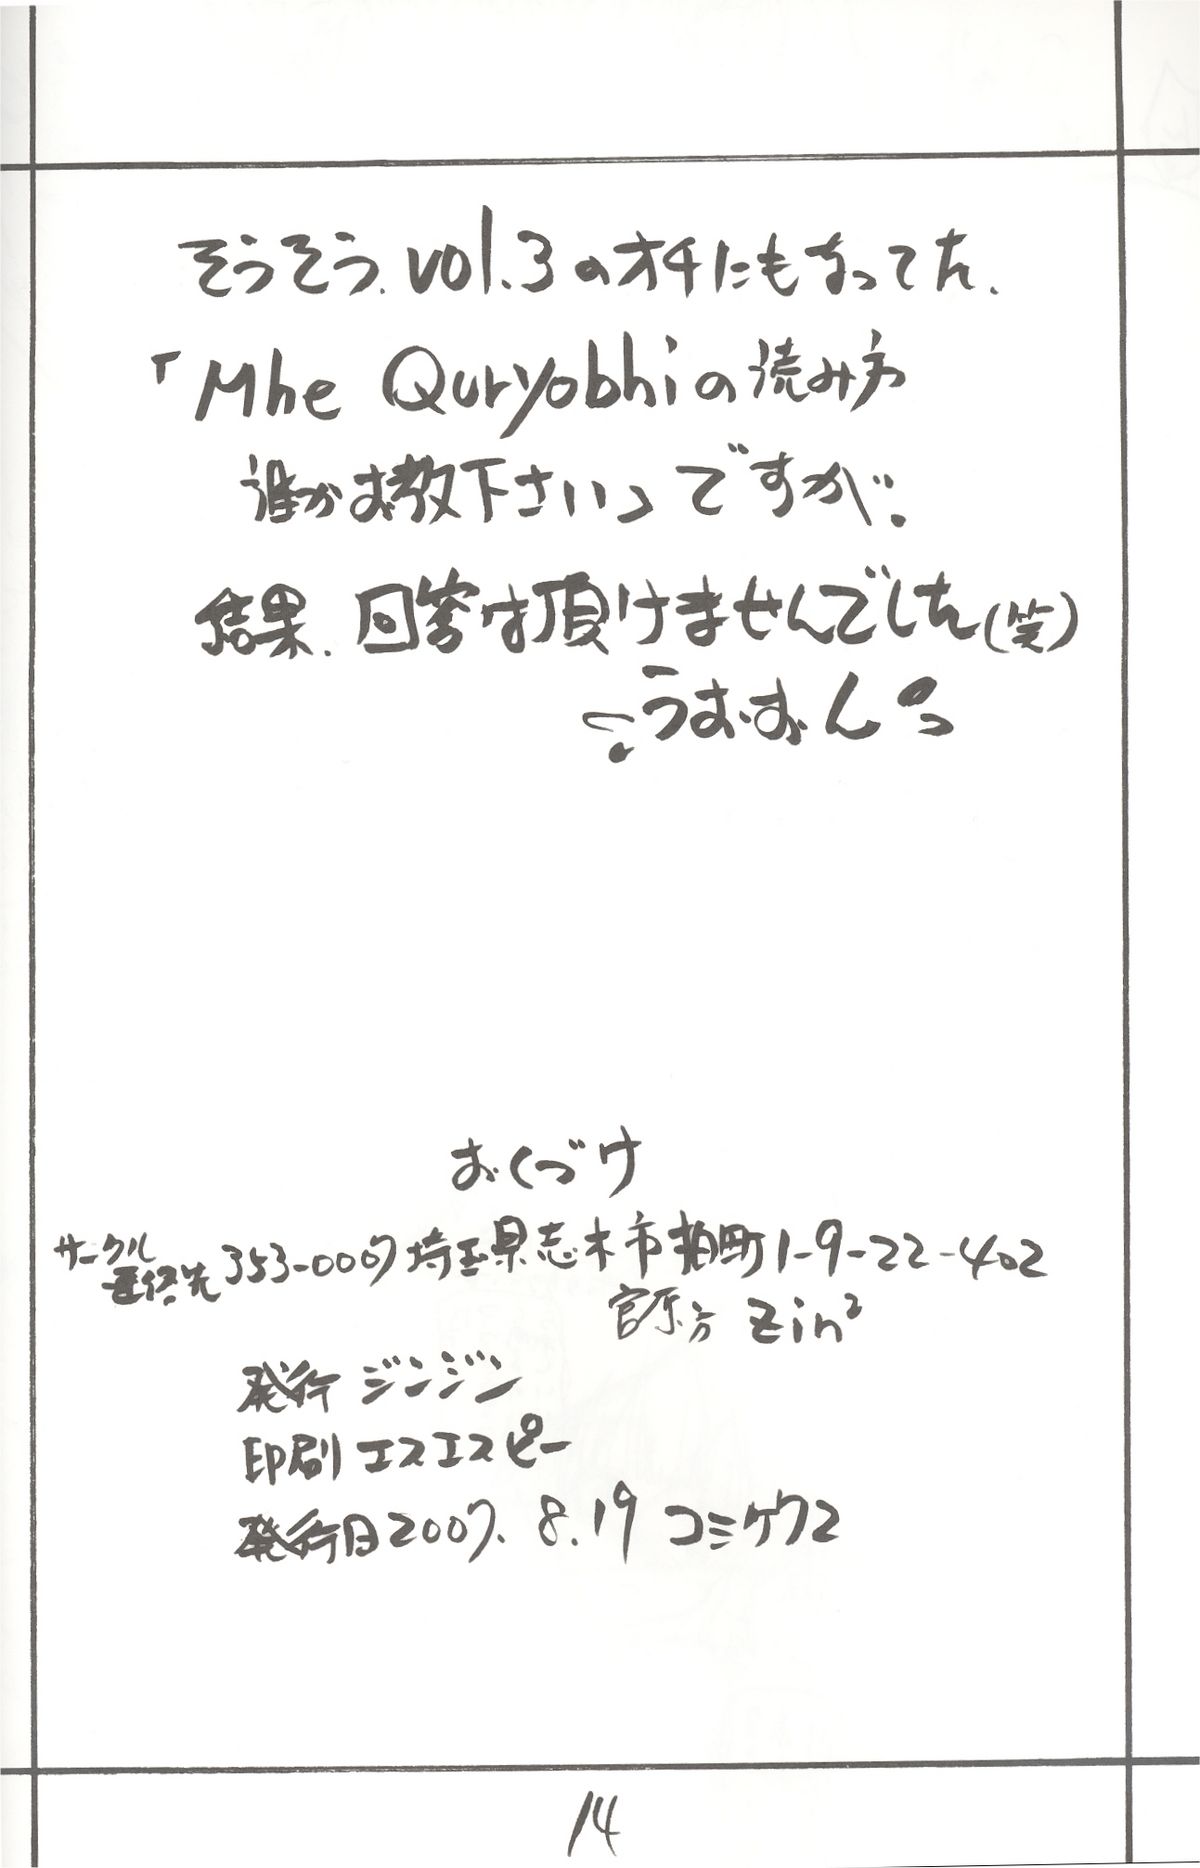 そうそう.vol.3のオチにもなってた、
「Mhe Quryobhiの読み方
誰かお教下さい」ですが。
結果、回答は頂けませんでした(笑)
うおおん
おくづけ
サークル
連絡先 353-0007 埼玉県志木市柏町1-9-22-402
宮原方 Zin²
発行 ジンジン
印刷 エスエスピー
発行日2007. 8.19 コミケ72
14